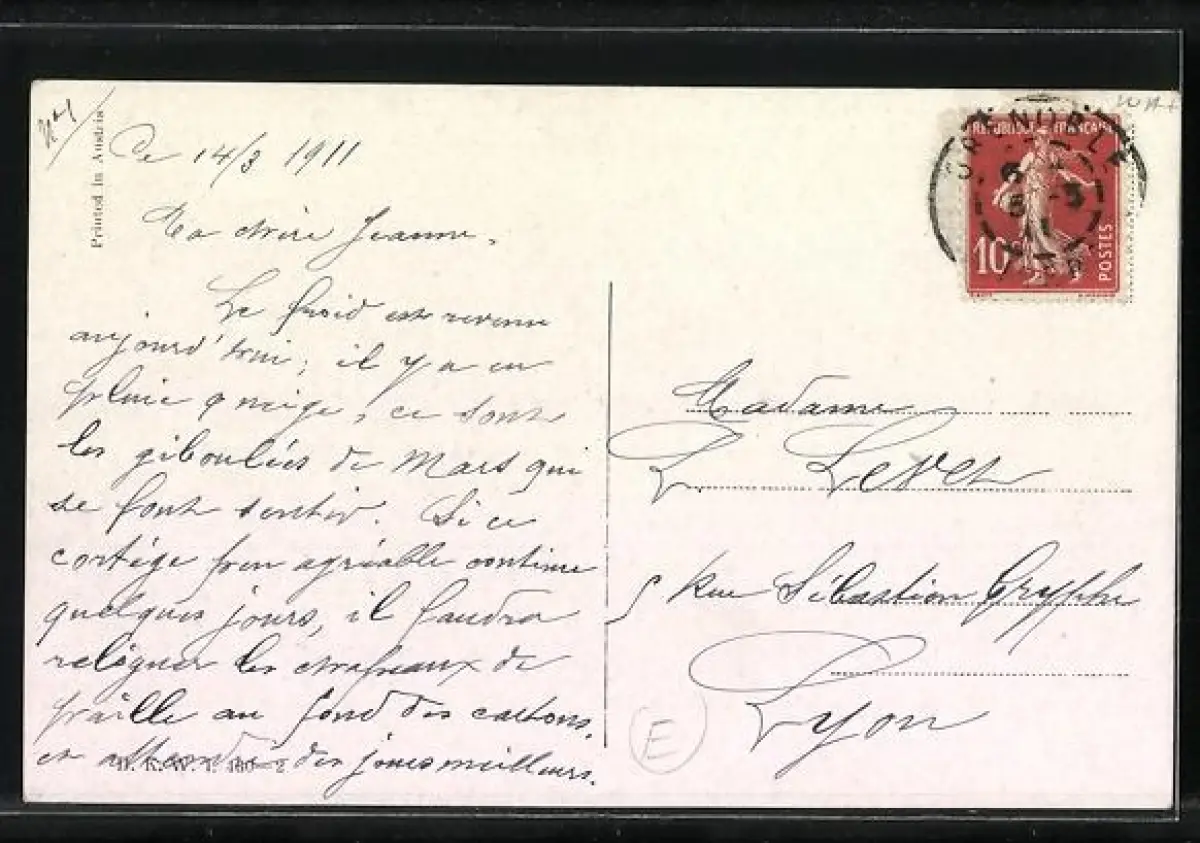 N°1
Printed in Austria
Ce 14/3 1911
Ma chère Jeanne,
Le froid est revenu
aujourd'hui; il y a eu
pluie & neige, ce sont
les giboulées de Mars qui
se font sentir. Si ce
cortège peu agréable continue
quelques jours, il faudra
reléguer les chapeaux de
paille au fond des cartons,
et attendre des jours meilleurs.
B. K. W. I.
GRENOBLE
REPUBLIQUE FRANÇAISE
10
POSTES
Madame
L. Levet
5 Rue Sébastien Gryphe
Lyon
E